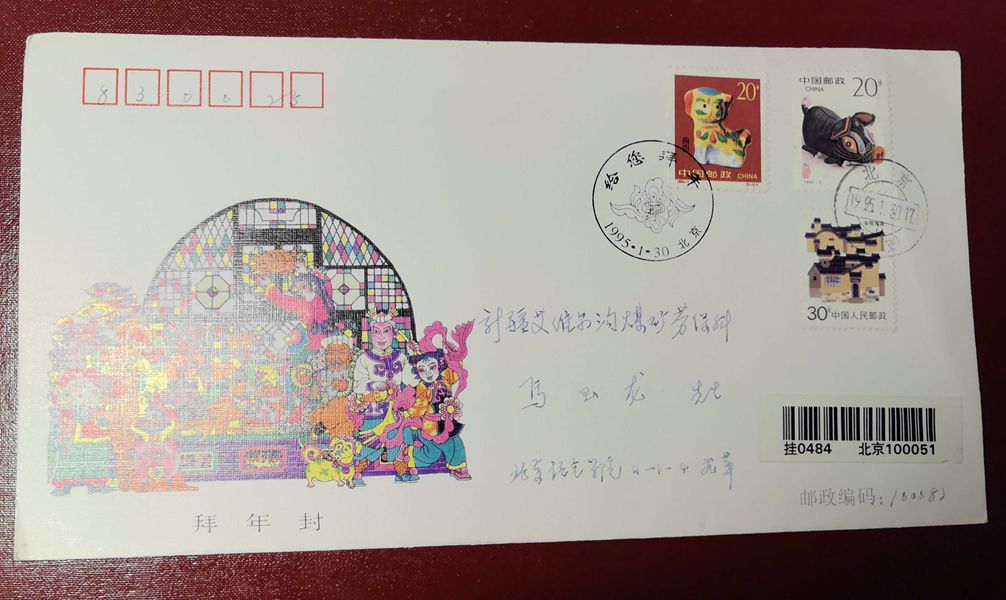 830025
20分
中国邮政 CHINA
中国邮政
CHINA
20分
给您拜年
1995·1·30 北京
北京
1995.1.30.17
30分 中国人民邮政
新疆艾维尔沟煤矿劳保科
马玉龙 先生
挂0484 北京100051
北京
拜年封
邮政编码:100082